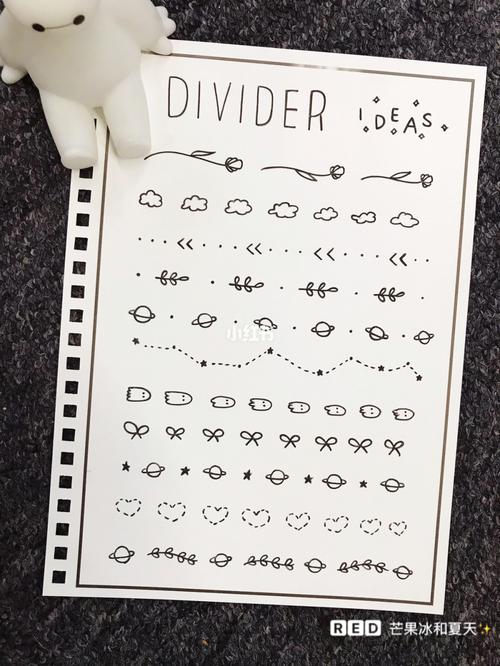 DIVIDER
IDEAS
小红书
RED 芒果冰和夏天✨